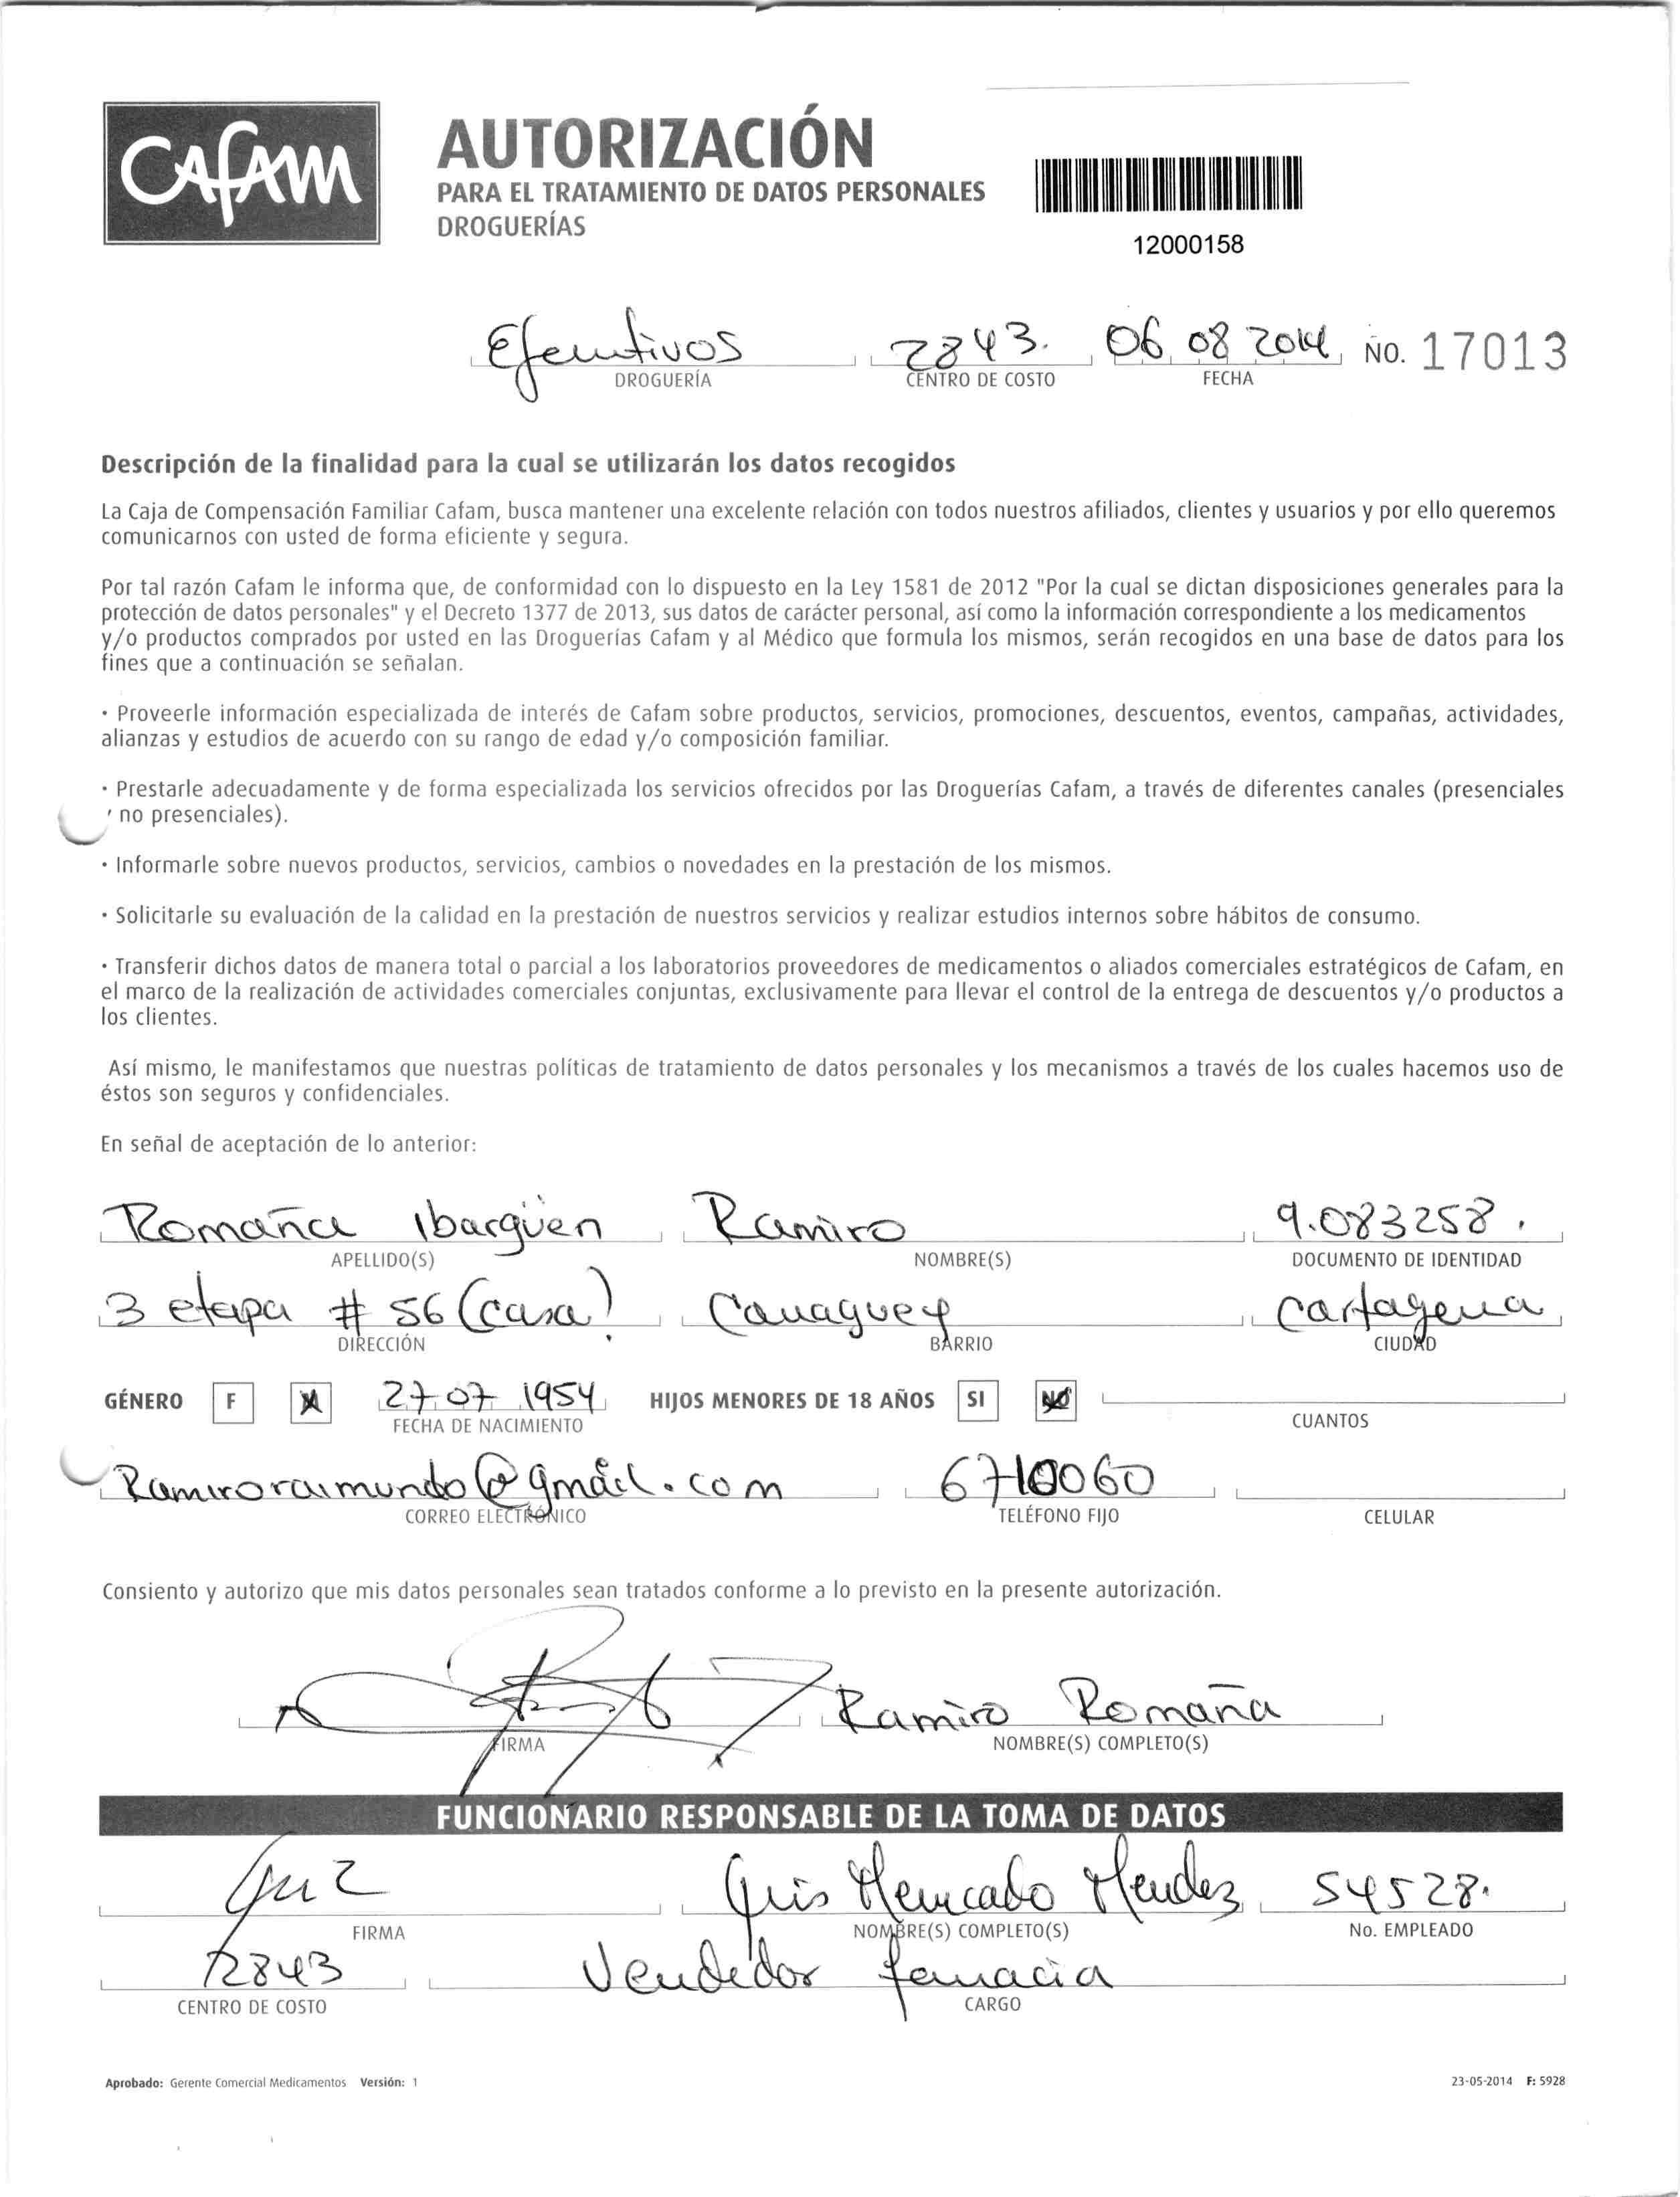 CAFAM
AUTORIZACIÓN
PARA EL TRATAMIENTO DE DATOS PERSONALES
DROGUERÍAS
12000158
Efecutivos 2843. 06 08 2014 No. 17013
DROGUERÍA CENTRO DE COSTO FECHA
Descripción de la finalidad para la cual se utilizarán los datos recogidos
La Caja de Compensación Familiar Cafam, busca mantener una excelente relación con todos nuestros afiliados, clientes y usuarios y por ello queremos
comunicarnos con usted de forma eficiente y segura.
Por tal razón Cafam le informa que, de conformidad con lo dispuesto en la Ley 1581 de 2012 "Por la cual se dictan disposiciones generales para la
protección de datos personales" y el Decreto 1377 de 2013, sus datos de carácter personal, así como la información correspondiente a los medicamentos
y/o productos comprados por usted en las Droguerías Cafam y al Médico que formula los mismos, serán recogidos en una base de datos para los
fines que a continuación se señalan.
· Proveerle información especializada de interés de Cafam sobre productos, servicios, promociones, descuentos, eventos, campañas, actividades,
alianzas y estudios de acuerdo con su rango de edad y/o composición familiar.
· Prestarle adecuadamente y de forma especializada los servicios ofrecidos por las Droguerías Cafam, a través de diferentes canales (presenciales
no presenciales).
· Informarle sobre nuevos productos, servicios, cambios o novedades en la prestación de los mismos.
· Solicitarle su evaluación de la calidad en la prestación de nuestros servicios y realizar estudios internos sobre hábitos de consumo.
· Transferir dichos datos de manera total o parcial a los laboratorios proveedores de medicamentos o aliados comerciales estratégicos de Cafam, en
el marco de la realización de actividades comerciales conjuntas, exclusivamente para llevar el control de la entrega de descuentos y/o productos a
los clientes.
Así mismo, le manifestamos que nuestras políticas de tratamiento de datos personales y los mecanismos a través de los cuales hacemos uso de
éstos son seguros y confidenciales.
En señal de aceptación de lo anterior:
Romaña Ibargüen Ramiro 9.083258.
APELLIDO(S) NOMBRE(S) DOCUMENTO DE IDENTIDAD
3 etapa # 56 (casa) Camaguey Cartagena
DIRECCIÓN BARRIO CIUDAD
GÉNERO F 27 07 1954 HIJOS MENORES DE 18 AÑOS SI NO
FECHA DE NACIMIENTO CUANTOS
Ramiroraimundo@gmail.com 6710060
CORREO ELECTRÓNICO TELÉFONO FIJO CELULAR
Consiento y autorizo que mis datos personales sean tratados conforme a lo previsto en la presente autorización.
Ramiro Romaña
FIRMA NOMBRE(S) COMPLETO(S)
FUNCIONARIO RESPONSABLE DE LA TOMA DE DATOS
Mercado Mendez 54528.
FIRMA NOMBRE(S) COMPLETO(S) No. EMPLEADO
2843 Vendedor famacia
CENTRO DE COSTO CARGO
Aprobado: Gerente Comercial Medicamentos Versión: 1 23-05-2014 F: 5928